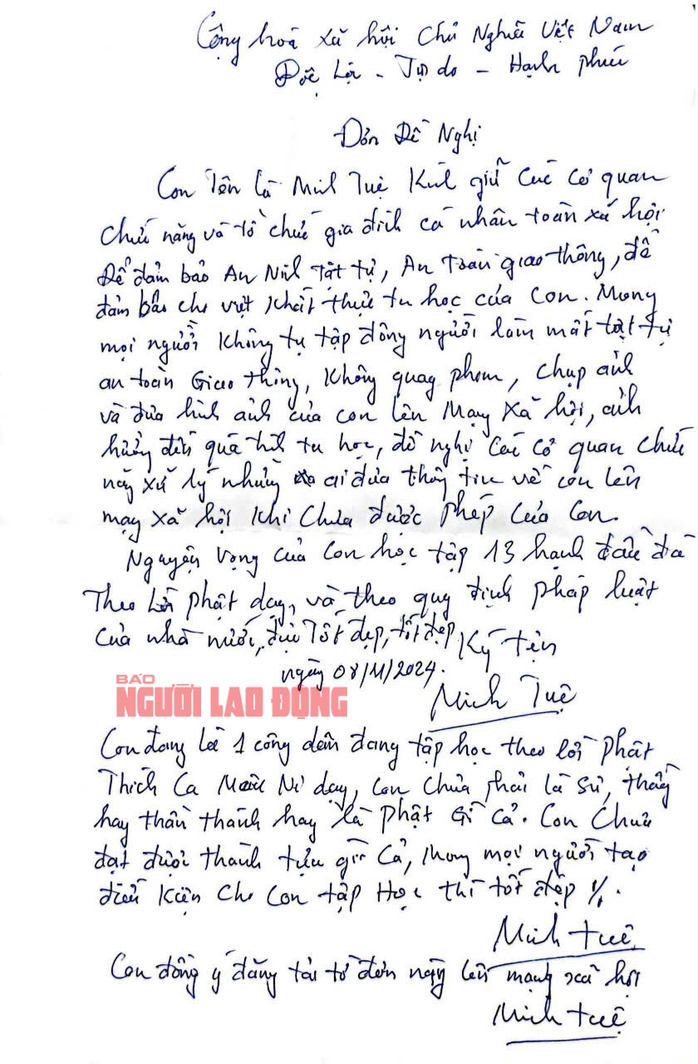 Cộng hoà xã hội Chủ Nghĩa Việt Nam
Độc Lập - Tự do - Hạnh phúc
Đơn Đề Nghị
Con Tên là Minh Tuệ Kính gửi các cơ quan
chức năng và tổ chức gia đình cá nhân toàn xã hội
Để đảm bảo An Ninh Trật tự, An toàn giao thông, để
đảm bảo cho việc khất thực tu học của con. Mong
mọi người không tụ tập đông người làm mất trật tự
an toàn Giao thông, không quay phim, chụp ảnh
và đưa hình ảnh của con lên Mạng xã hội, ảnh
hưởng đến quá trình tu học, đề nghị các cơ quan chức
năng xử lý những ai đưa thông tin về con lên
mạng xã hội khi chưa được phép của con.
Nguyện vọng của con học tập 13 hạnh đầu đà
Theo lời phật dạy, và theo quy định pháp luật
của nhà nước, được tốt đẹp, tốt đẹp Ký tên
ngày 08/11/2024.
Minh Tuệ
BÁO
NGƯỜI LAO ĐỘNG
Con đang là 1 công dân đang tập học theo lời phật
Thích Ca Mâu Ni dạy, con chưa phải là sư, thầy
hay thần thánh hay là phật gì cả. Con chưa
đạt được thành tựu gì cả, mong mọi người tạo
điều kiện cho con tập học thì tốt đẹp %.
Minh Tuệ
Con đồng ý đăng tải tờ đơn này lên mạng xã hội
Minh Tuệ